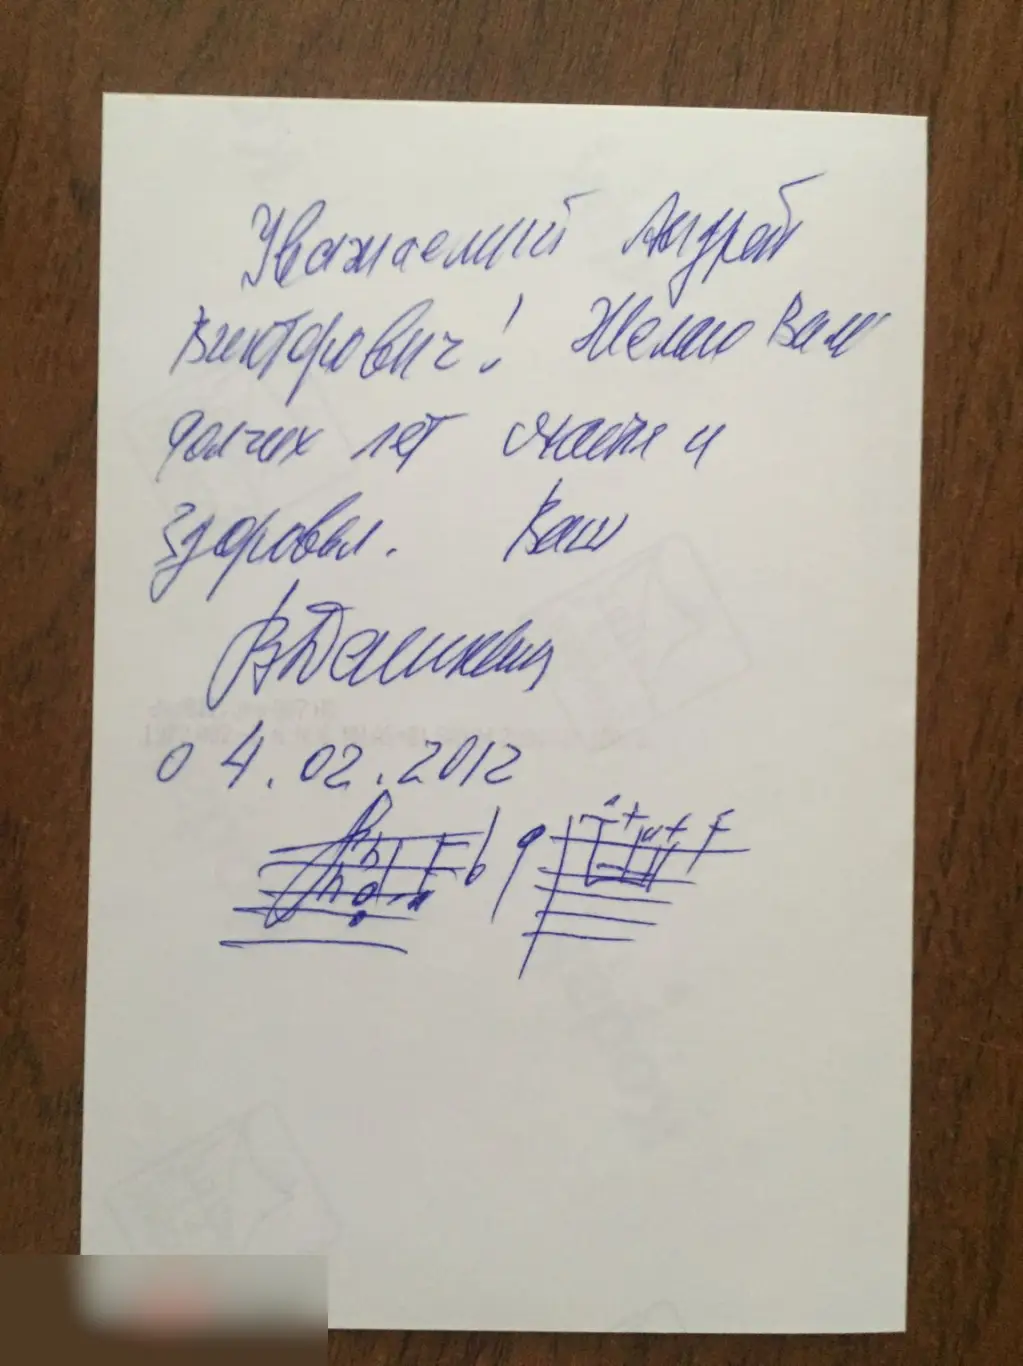 Уважаемый Андрей
Викторович! Желаю Вам
долгих лет счастья и
здоровья. Ваш
В Дашкевич
04.02.2012